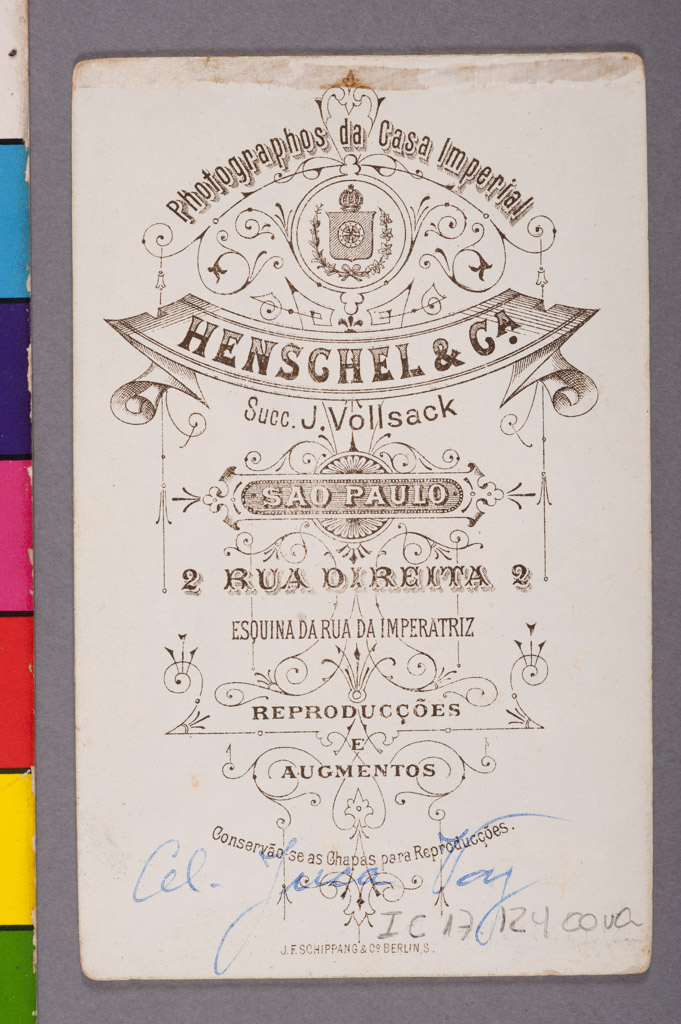 Photographos da Casa Imperial
HENSCHEL & Cª
Succ. J. Vollsack
SÃO PAULO
2 RUA DIREITA 2
ESQUINA DA RUA DA IMPERATRIZ
REPRODUCÇÕES
E
AUGMENTOS
Conservão-se as Chapas para Reproducções.
Cel.
I C 17 124
J. F. SCHIPPANG & Cº BERLIN, S.